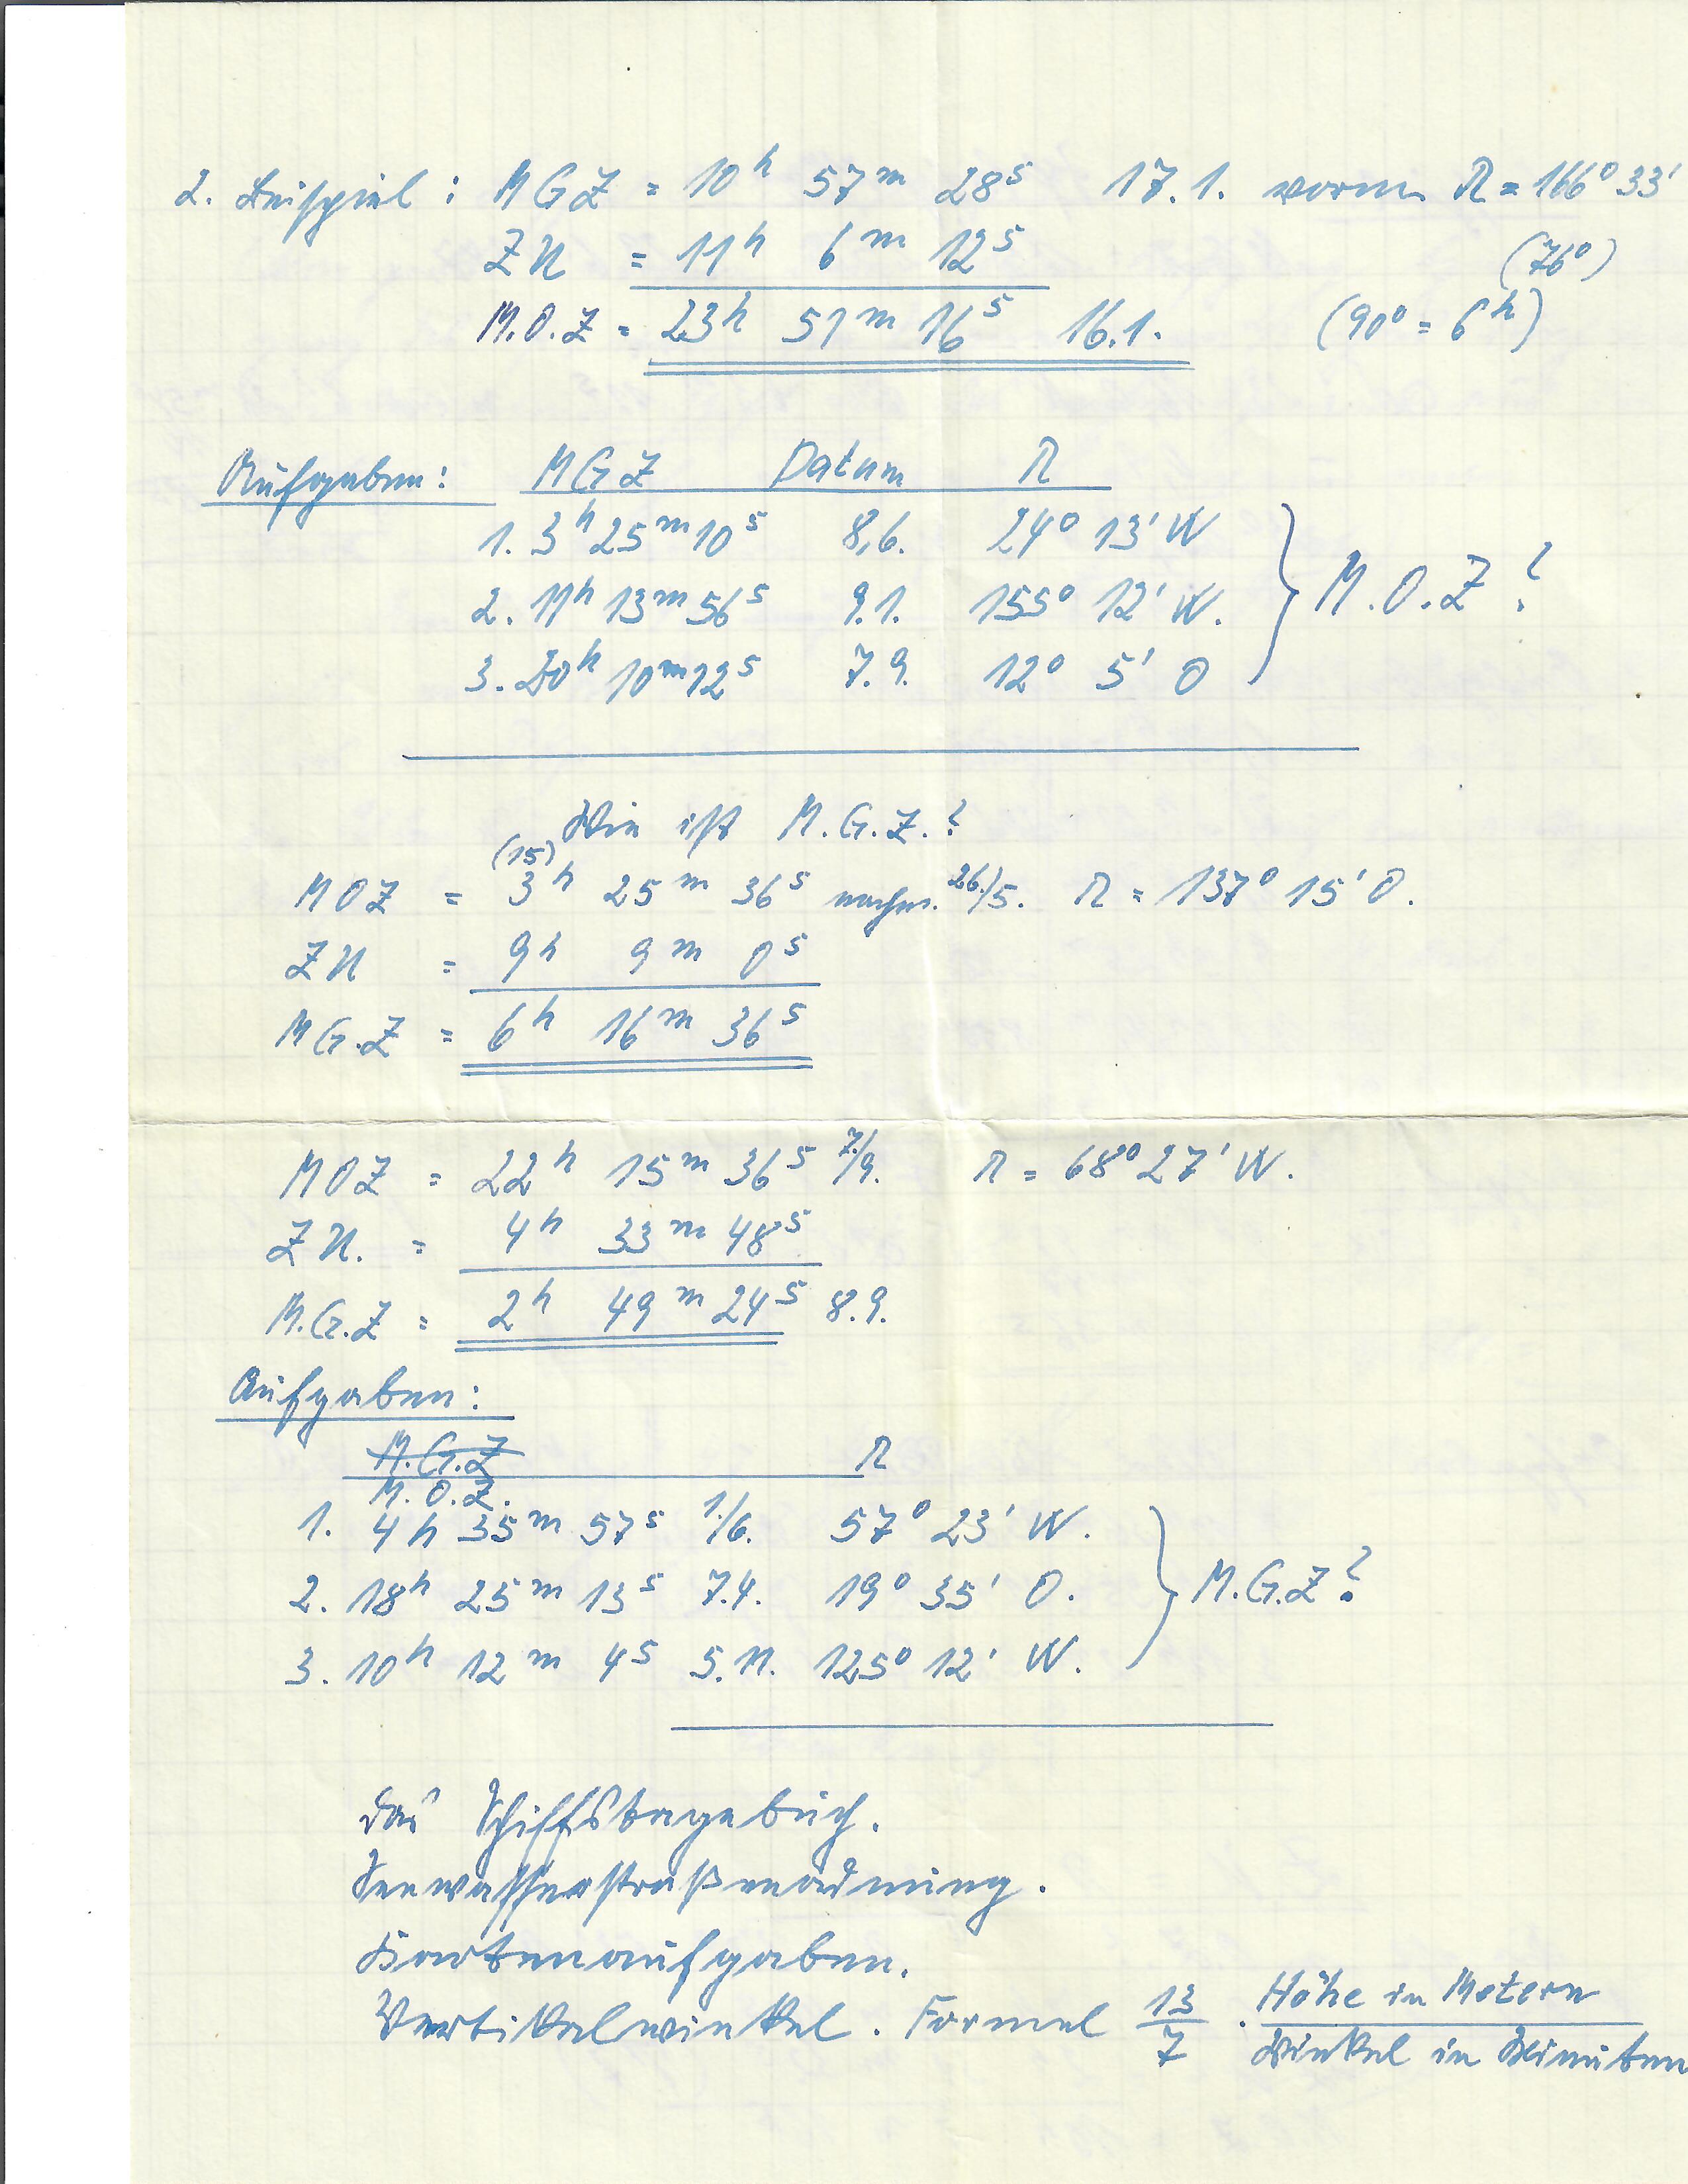 2. Beispiel: MGZ = 10h 57m 28s 17.1. vorm. λ = 166° 33'
ZU = 11h 6m 12s (76°)
M.O.Z = 23h 51m 16s 16.1. (90° = 6h)
Aufgaben: MGZ Datum λ
1. 3h 25m 10s 8.6. 24° 13' W
2. 11h 13m 56s 9.1. 155° 12' W. } M.O.Z?
3. 20h 10m 12s 7.9. 12° 5' O
Wie ist M.G.Z.?
(15)
MOZ = 3h 25m 36s nachm. 26./5. λ = 137° 15' O.
ZU = 9h 9m 0s
MG.Z = 6h 16m 36s
MOZ = 22h 15m 36s 7./9. λ = 68° 27' W.
ZU. = 4h 33m 48s
M.G.Z = 2h 49m 24s 8.9.
Aufgaben:
M.G.Z λ
M.O.Z.
1. 4h 35m 57s 1./6. 57° 23' W.
2. 18h 25m 13s 7.4. 19° 35' O. } M.G.Z?
3. 10h 12m 4s 5.11. 125° 12' W.
Das Schiffstagebuch.
Seewasserstraßenordnung.
Kartenaufgaben.
Vertikalwinkel. Formel 13/7 · Höhe in Metern / Winkel in Minuten